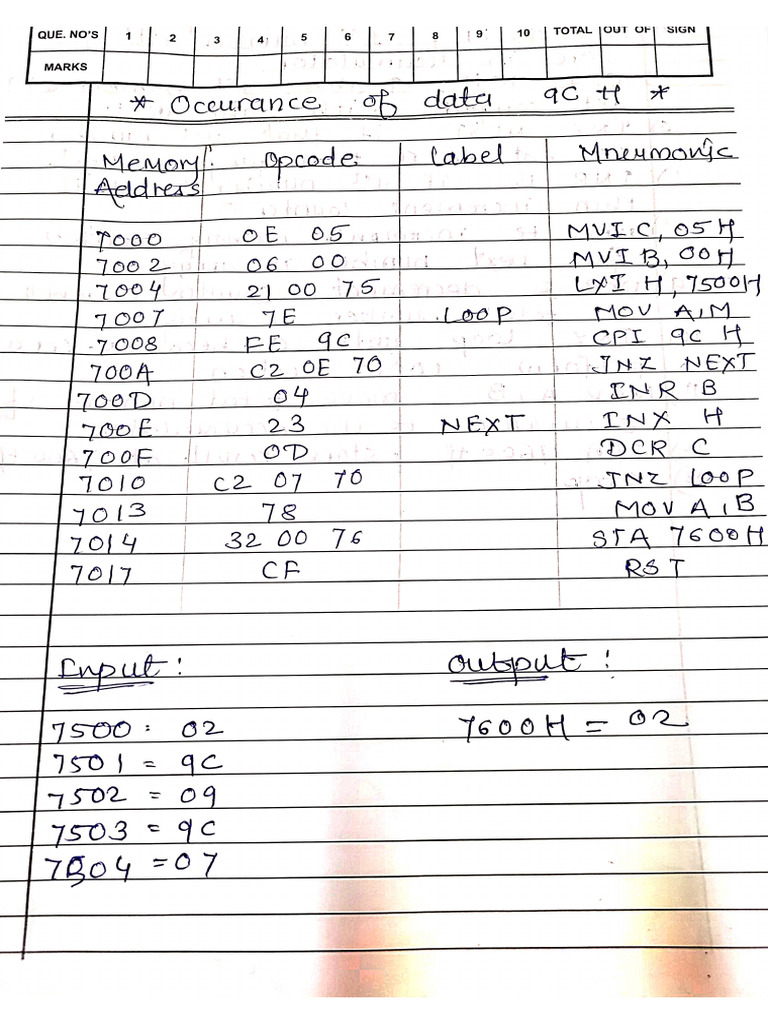 QUE. NO'S 1 2 3 4 5 6 7 8 9 10 TOTAL OUT OF SIGN
MARKS
* Occurance of data 9C H *
Memory Address Opcode Label Mnemonic
7000 0E 05 MVI C, 05H
7002 06 00 MVI B, 00H
7004 21 00 75 LXI H, 7500H
7007 7E LOOP MOV A,M
7008 FE 9C CPI 9C H
700A C2 0E 70 JNZ NEXT
700D 04 INR B
700E 23 NEXT INX H
700F 0D DCR C
7010 C2 07 70 JNZ LOOP
7013 78 MOV A,B
7014 32 00 76 STA 7600H
7017 CF RST
Input : Output :
7500 : 02 7600H = 02
7501 = 9C
7502 = 09
7503 = 9C
7504 = 07